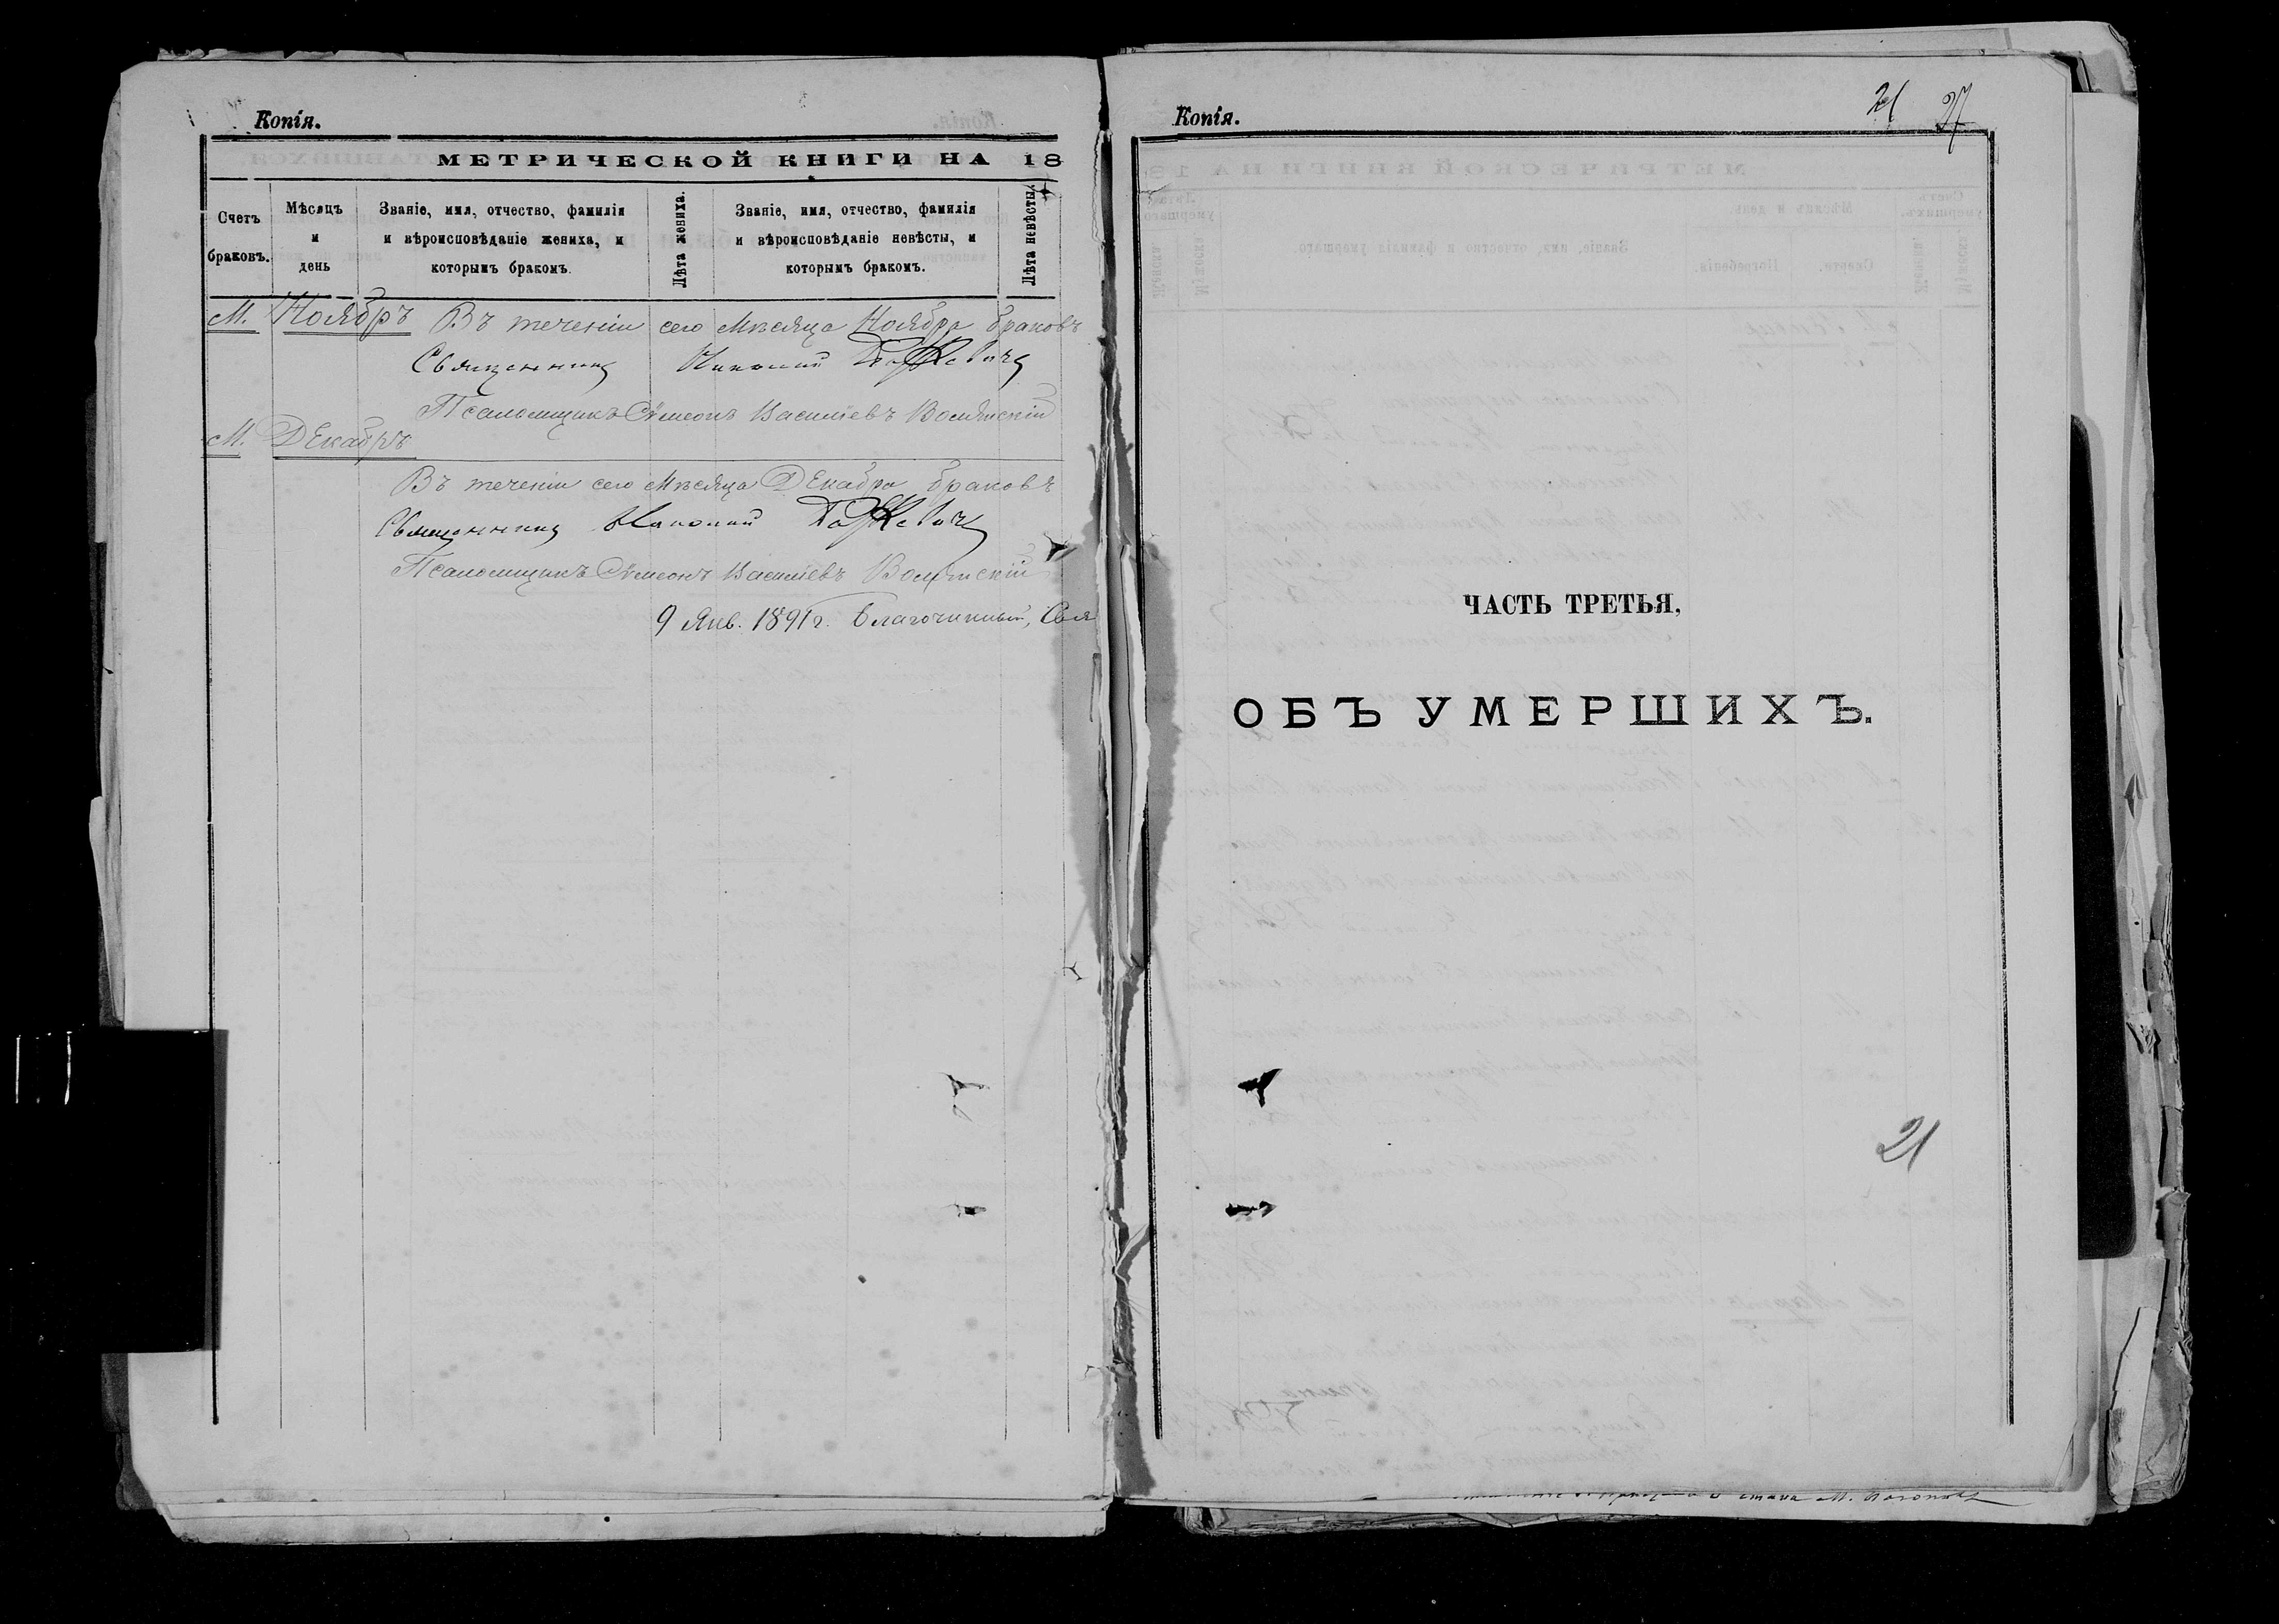 Копія.
МЕТРИЧЕСКОЙ КНИГИ НА 18
Счетъ браковъ.
Мѣсяцъ и день
Званіе, имя, отчество, фамилія и вѣроисповѣданіе жениха, и которымъ бракомъ.
Лѣта жениха.
Званіе, имя, отчество, фамилія и вѣроисповѣданіе невѣсты, и которымъ бракомъ.
Лѣта невѣсты.
М. Ноябръ Въ теченіи сего Мѣсяца Ноября браковъ
Священникъ Николай
Псаломщикъ Сѵмеонъ Василіевъ
М. Декабръ
Въ теченіи сего Мѣсяца Декабря браковъ
Священникъ Николай
Псаломщикъ Сѵмеонъ Василіевъ
9 Янв. 1891 г. Благочинный, Свя
Копія.
21 27
ЧАСТЬ ТРЕТЬЯ,
ОБЪ УМЕРШИХЪ.
21